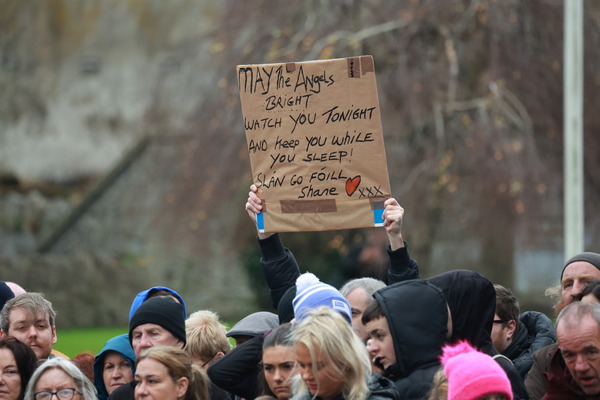 MAY The Angels
BRIGHT
WATCH YOU TONIGHT
AND Keep YOU WHILE
YOU SLEEP!
SLÁN GO FÓILL
Shane ❤ xxx